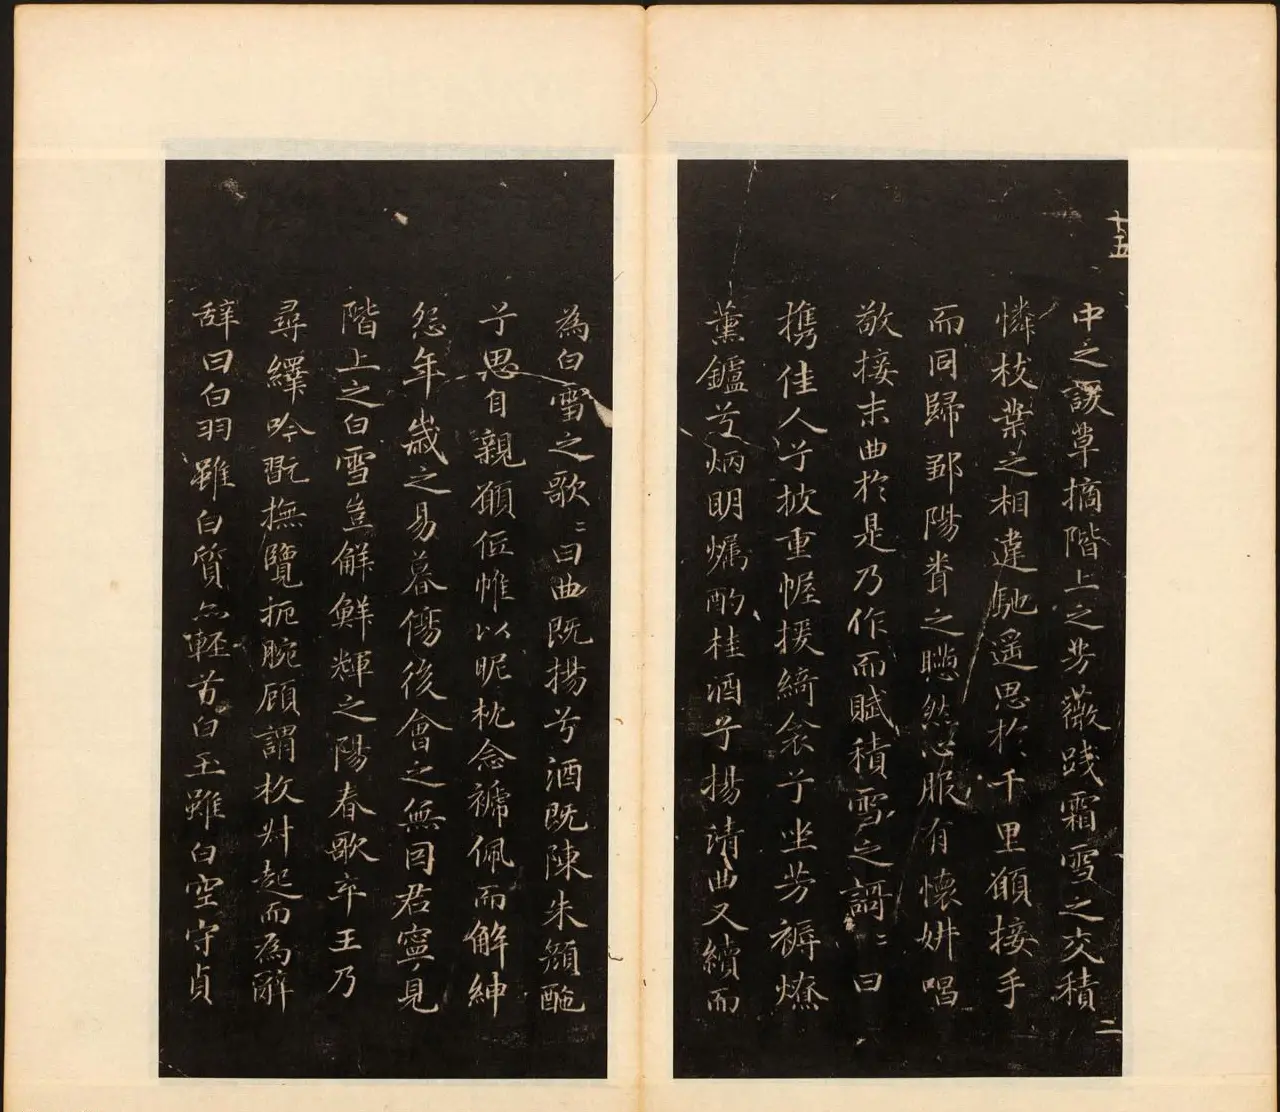 十五
中之萲草摘階上之芳薇踐霜雪之交積
憐枝葉之相違馳遥思於千里願接手
而同歸鄒陽聞之懣然心服有懷妍唱
敬接末曲於是乃作而賦積雪之謌〻曰
攜佳人兮披重幄援綺衾兮坐芳褥燎
薰鑪兮炳明燭酌桂酒兮揚清曲又續而
二
為白雪之歌〻曰曲既揚兮酒既陳朱顏酡
兮思自親願低帷以昵枕念褫佩而解紳
怨年歲之易暮傷後會之無因君寧見
階上之白雪豈解鮮輝之陽春歌卒王乃
尋繹吟翫撫覽扼腕顧謂枚叔起而為辭
辞曰白羽雖白質亦輕兮白玉雖白空守貞